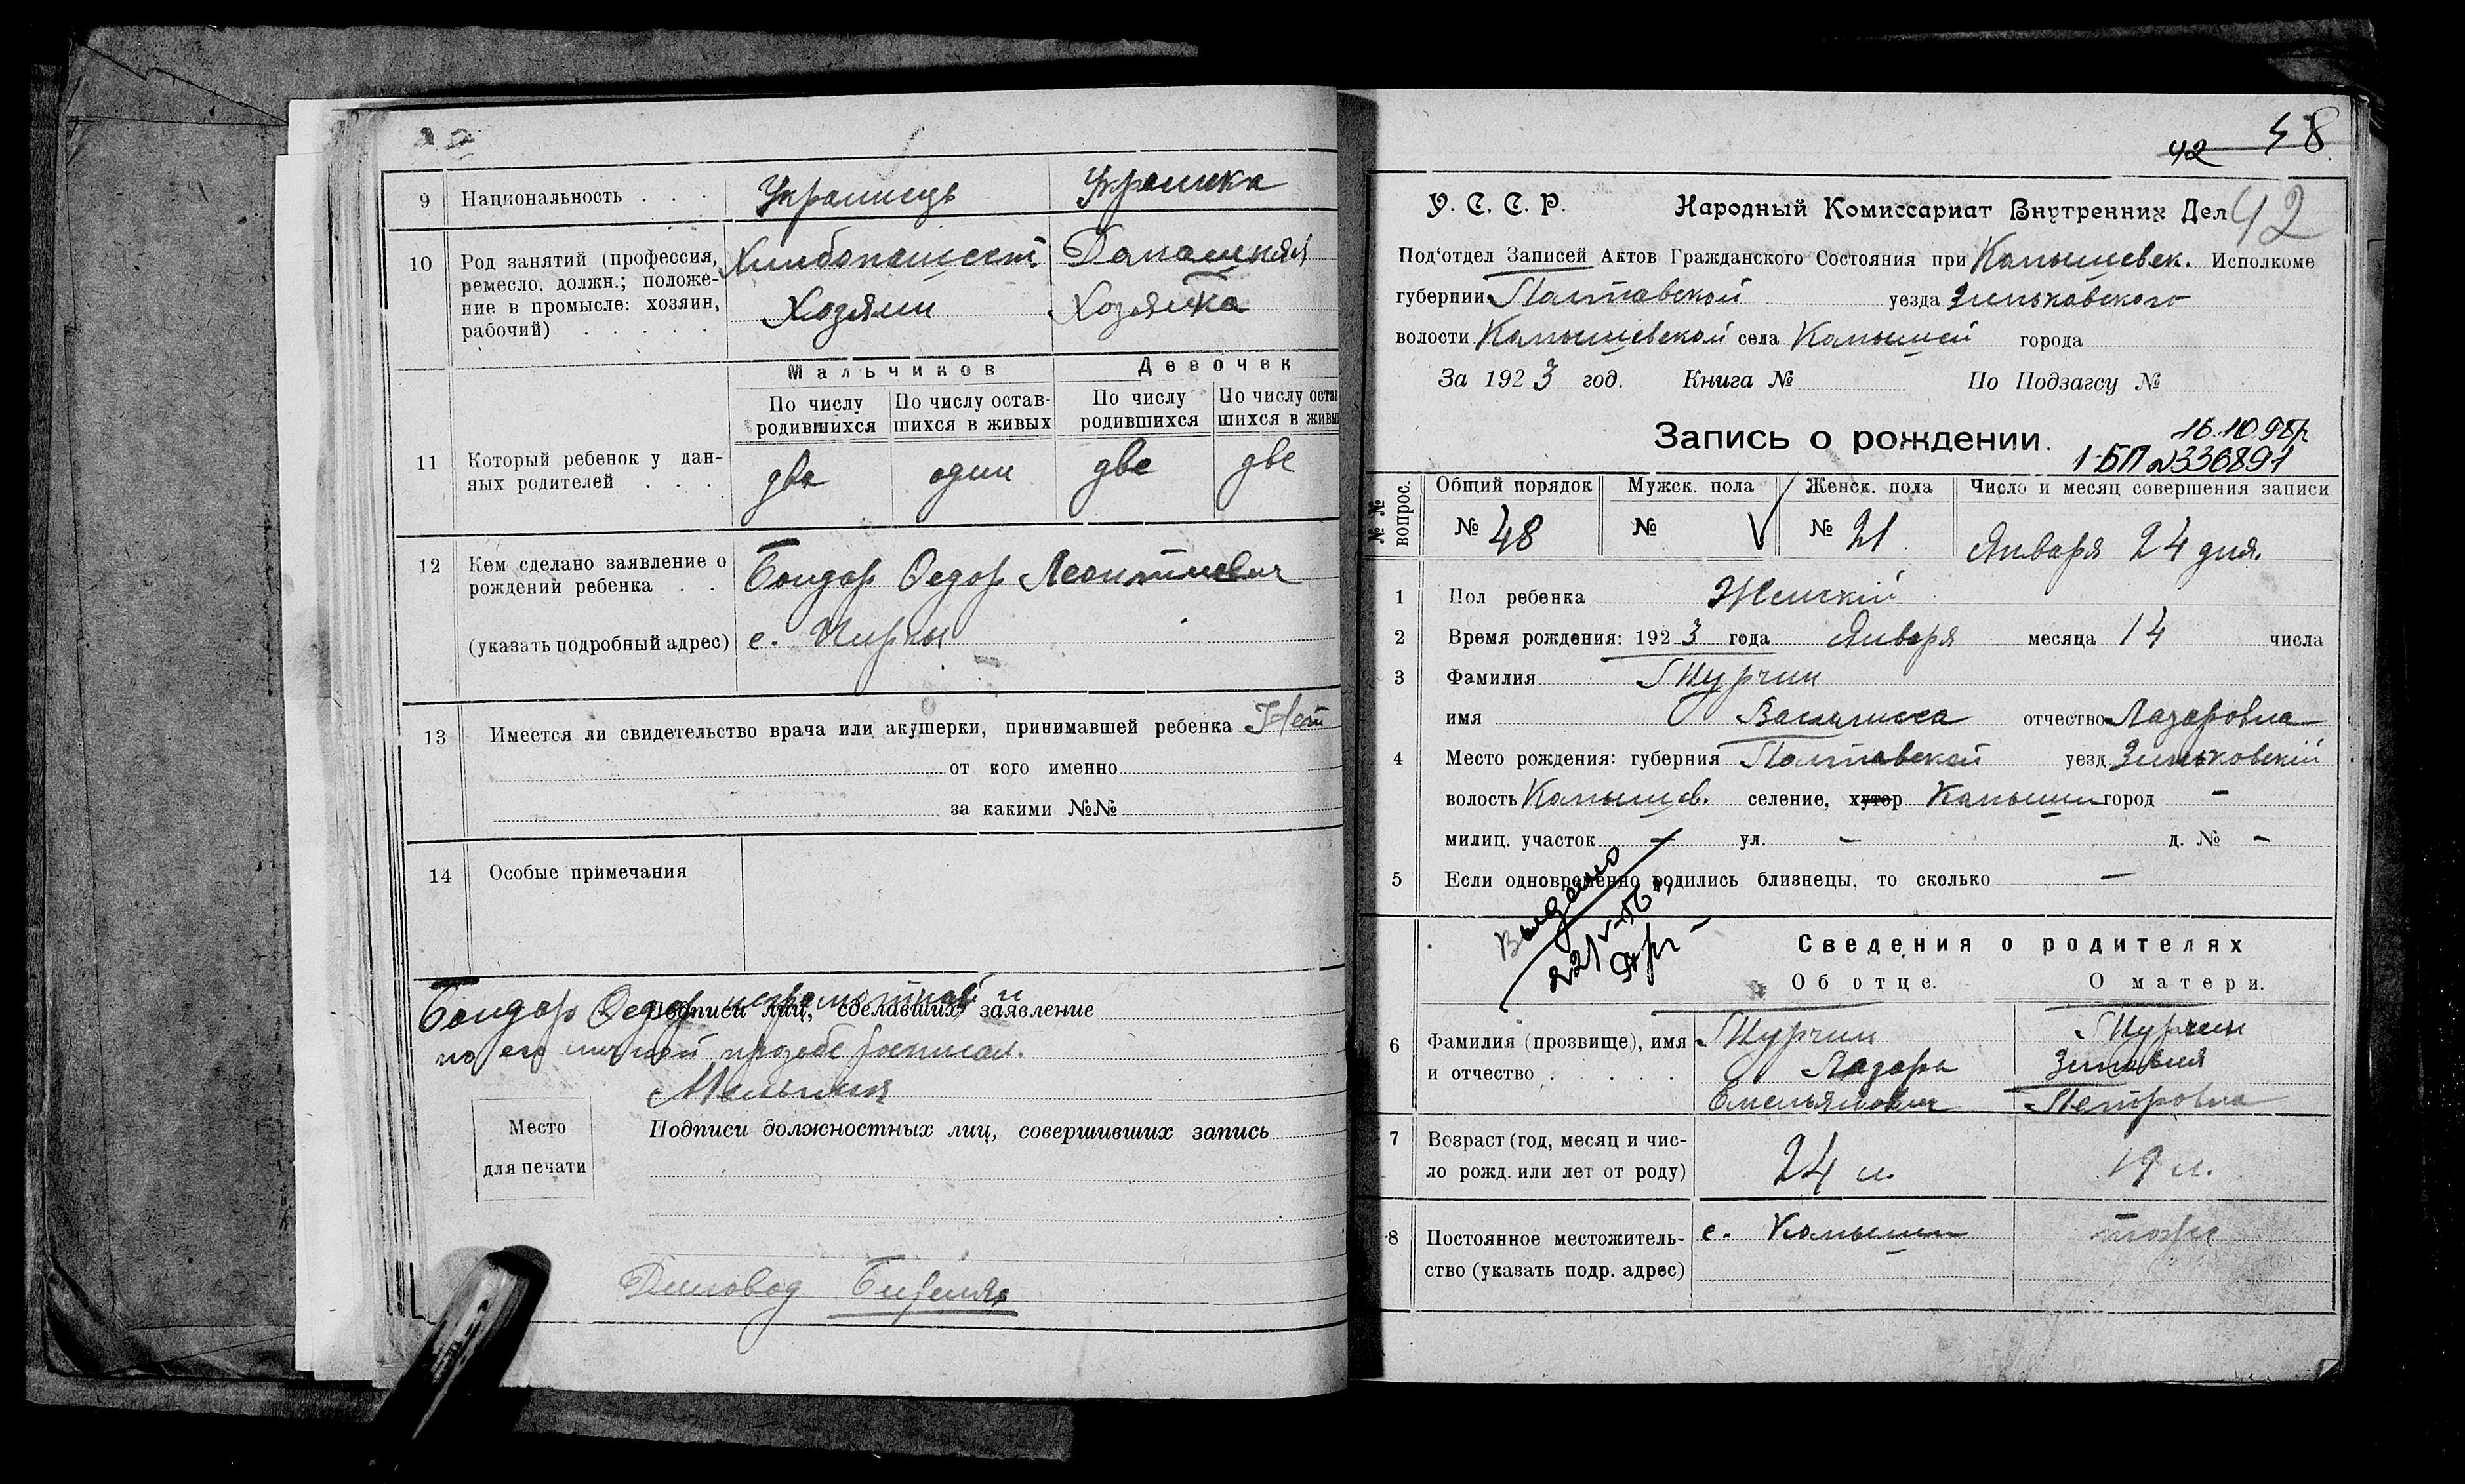 9 Национальность . . . Украинець Украинка
10 Род занятий (профессия, Хлибопашест. Домашняя
ремесло, должн.; положе-
ние в промысле: хозяин, Хозяин Хозяйка
рабочий) . . . . .
Мальчиков Девочек
По числу По числу остав- По числу По числу оста
родившихся шихся в живых родившихся шихся в живы
11 Который ребенок у дан- два один две две
ных родителей . . .
12 Кем сделано заявление о Бондар Федор Леонтиевич
рождении ребенка . .
(указать подробный адрес) с.
13 Имеется ли свидетельство врача или акушерки, принимавшей ребенка Нет
от кого именно
за какими №№
14 Особые примечания
Бондар Федор неграмотный и
Подписи лиц, сделавших заявление
по его личной прозбе росписал.
Место Подписи должностных лиц, совершивших запись
для печати
Диловод
42 48
У. С. С. Р. Народный Комиссариат Внутренних Дел 42
Под'отдел Записей Актов Гражданского Состояния при Камышевск. Исполкоме
губернии Полтавской уезда Зиньковского
волости Камышевской села Камышей города
За 1923 год. Книга № По Подзагсу №
16.10.98р
Запись о рождении.
1-БП №336891
№№ вопрос. Общий порядок Мужск. пола Женск. пола Число и месяц совершения записи
№ 48 № V № 21 Января 24 дня.
1 Пол ребенка Женскій
2 Время рождения: 1923 года Января месяца 14 числа
3 Фамилия Шурчин
имя Васылиса отчество Лазаровна
4 Место рождения: губерния Полтавской уезд Зиньковскій
волость Камышев. селение, хутор Камыши город -
милиц. участок - ул. - д. № -
5 Если одновременно родились близнецы, то сколько -
Выдано
22/V-56 г.
Сведения о родителях
Об отце. О матери.
6 Фамилия (прозвище), имя Шурчин Шурчин
и отчество . . . . Лазарь Зиновия
Емельянович Петровна
7 Возраст (год, месяц и чис- 24 л. 19 л.
ло рожд. или лет от роду)
8 Постоянное местожитель- с. Камыши тоже
ство (указать подр. адрес)